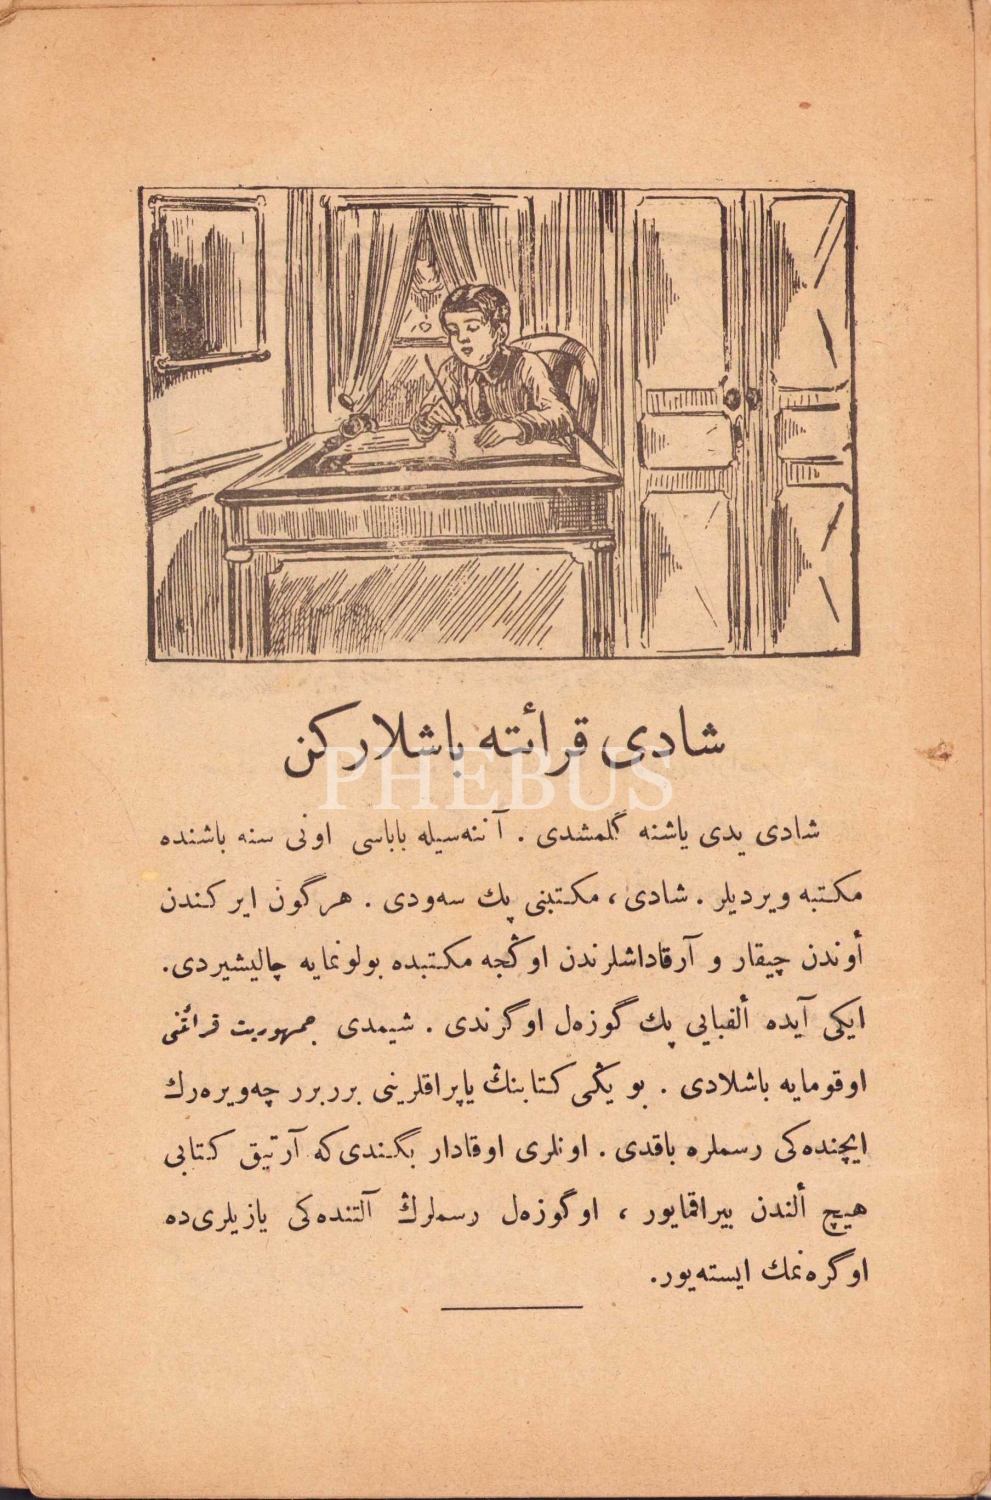 شادی قرأئته باشلاركن
PHEBUS
شادی یدی یاشنه گلمشدی . آننه‌سیله باباسی اونی سنه باشنده
مكتبه ویردیلر . شادی ، مكتبنی پك سه‌ودی . هرگون ایركندن
أوندن چیقار و آرقاداشلرندن اوڭجه مكتبده بولونمایه چالیشیردی.
ایكی آیده ألفبایی پك گوزه‌ل اوگرندی . شیمدی جمهوریت قرائتنی
اوقومایه باشلادی . بو یڭی كتابنڭ یاپراقلرینی برربرر چه‌ویره‌رك
ایچنده‌كی رسملره باقدی . اونلری اوقادار بگندی‌كه آرتیق كتابی
هیچ ألندن بیراقمایور ، اوگوزه‌ل رسملرڭ آلتنده‌كی یازیلری‌ده
اوگره‌نمك ایسته‌یور.